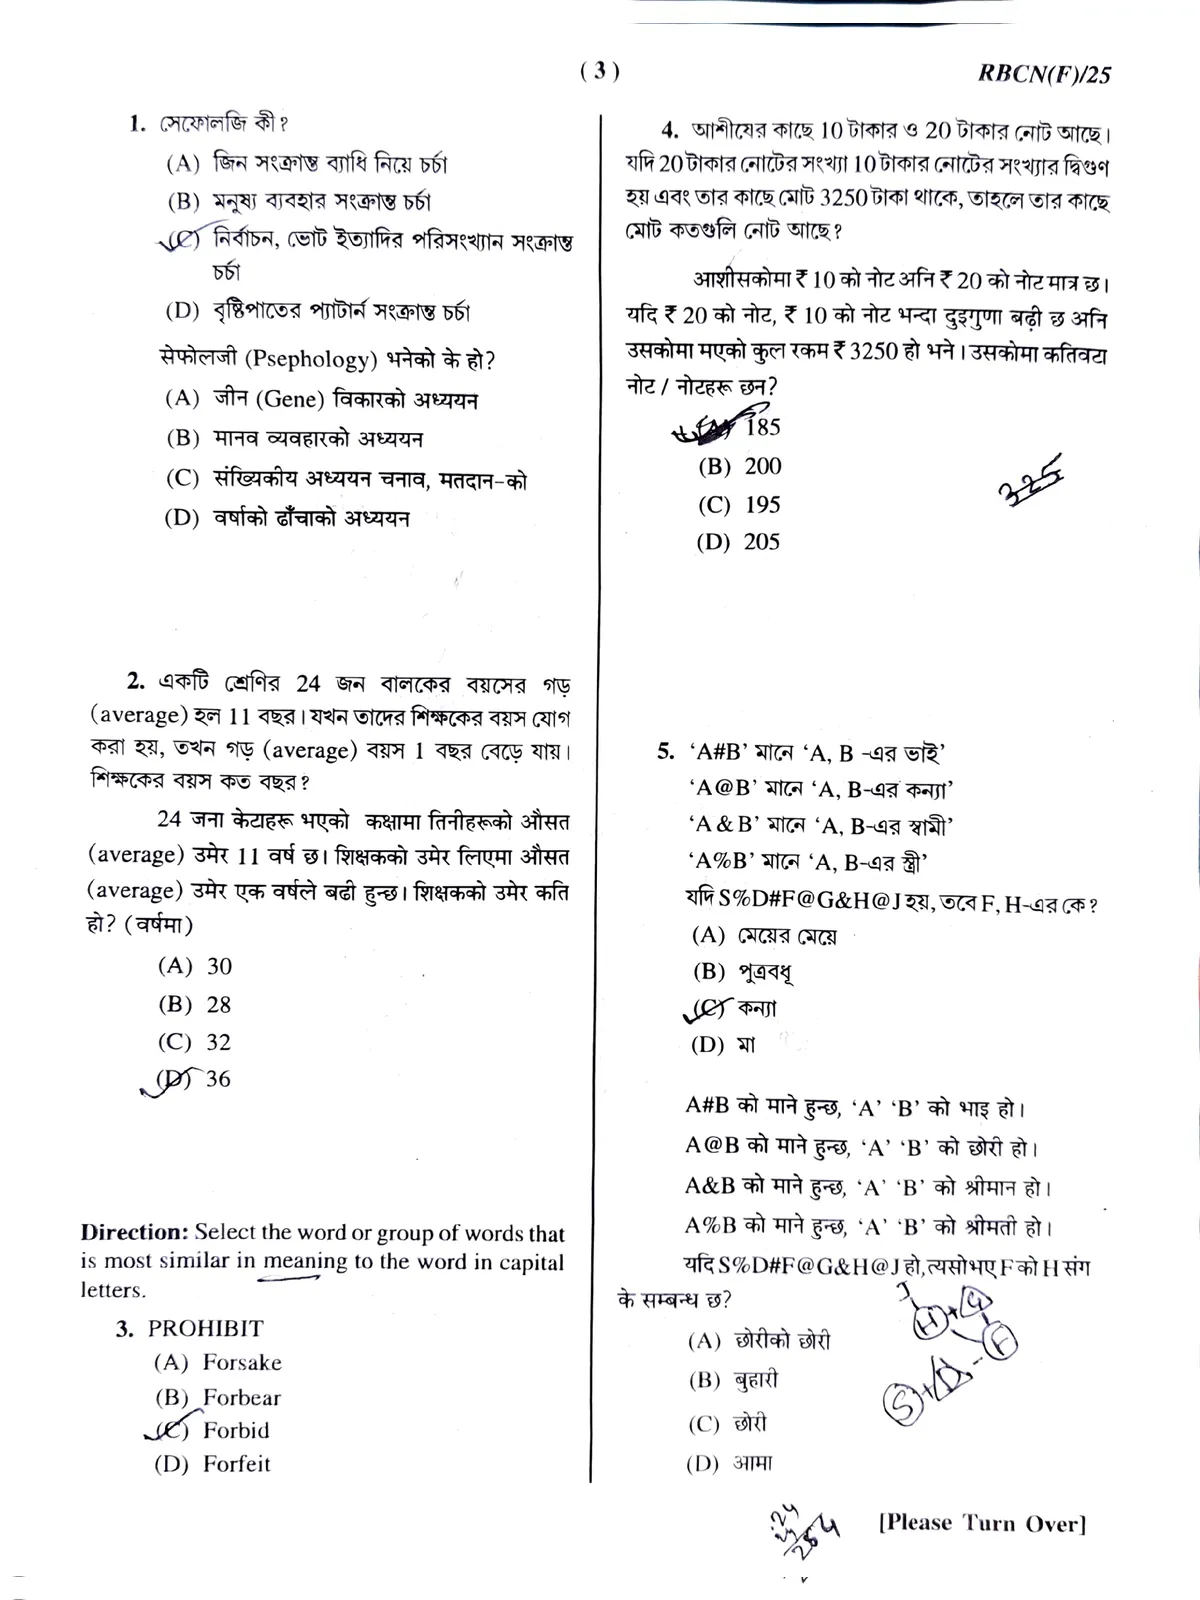 ( 3 )
RBCN(F)/25
1. সেফোলজি কী?
(A) জিন সংক্রান্ত ব্যাধি নিয়ে চর্চা
(B) মনুষ্য ব্যবহার সংক্রান্ত চর্চা
(C) নির্বাচন, ভোট ইত্যাদির পরিসংখ্যান সংক্রান্ত
চর্চা
(D) বৃষ্টিপাতের প্যাটার্ন সংক্রান্ত চর্চা
सेफोलजी (Psephology) भनेको के हो?
(A) जीन (Gene) विकारको अध्ययन
(B) मानव व्यवहारको अध्ययन
(C) संख्यिकीय अध्ययन चनाव, मतदान-को
(D) वर्षाको ढाँचाको अध्ययन
2. একটি শ্রেণির 24 জন বালকের বয়সের গড়
(average) হল 11 বছর। যখন তাদের শিক্ষকের বয়স যোগ
করা হয়, তখন গড় (average) বয়স 1 বছর বেড়ে যায়।
শিক্ষকের বয়স কত বছর?
24 जना केटाहरू भएको कक्षामा तिनीहरूको औसत
(average) उमेर 11 वर्ष छ। शिक्षकको उमेर लिएमा औसत
(average) उमेर एक वर्षले बढी हुन्छ। शिक्षकको उमेर कति
हो? (वर्षमा)
(A) 30
(B) 28
(C) 32
(D) 36
Direction: Select the word or group of words that
is most similar in meaning to the word in capital
letters.
3. PROHIBIT
(A) Forsake
(B) Forbear
(C) Forbid
(D) Forfeit
4. আশীষের কাছে 10 টাকার ও 20 টাকার নোট আছে।
যদি 20 টাকার নোটের সংখ্যা 10 টাকার নোটের সংখ্যার দ্বিগুণ
হয় এবং তার কাছে মোট 3250 টাকা থাকে, তাহলে তার কাছে
মোট কতগুলি নোট আছে?
आशीसकोमा ₹ 10 को नोट अनि ₹ 20 को नोट मात्र छ।
यदि ₹ 20 को नोट, ₹ 10 को नोट भन्दा दुइगुणा बढ़ी छ अनि
उसकोमा मएको कुल रकम ₹ 3250 हो भने। उसकोमा कतिवटा
नोट / नोटहरू छन?
(A) 185
(B) 200
(C) 195
(D) 205
325
5. ‘A#B’ মানে ‘A, B -এর ভাই’
‘A@B’ মানে ‘A, B-এর কন্যা’
‘A & B’ মানে ‘A, B-এর স্বামী’
‘A%B’ মানে ‘A, B-এর স্ত্রী’
যদি S%D#F@G&H@J হয়, তবে F, H-এর কে?
(A) মেয়ের মেয়ে
(B) পুত্রবধূ
(C) কন্যা
(D) মা
A#B को माने हुन्छ, ‘A’ ‘B’ को भाइ हो।
A@B को माने हुन्छ, ‘A’ ‘B’ को छोरी हो।
A&B को माने हुन्छ, ‘A’ ‘B’ को श्रीमान हो।
A%B को माने हुन्छ, ‘A’ ‘B’ को श्रीमती हो।
यदि S%D#F@G&H@J हो, त्यसोभए F को H संग
के सम्बन्ध छ?
(A) छोरीको छोरी
(B) बुहारी
(C) छोरी
(D) आमा
J
H + G
S + D - F
24
264
[Please Turn Over]